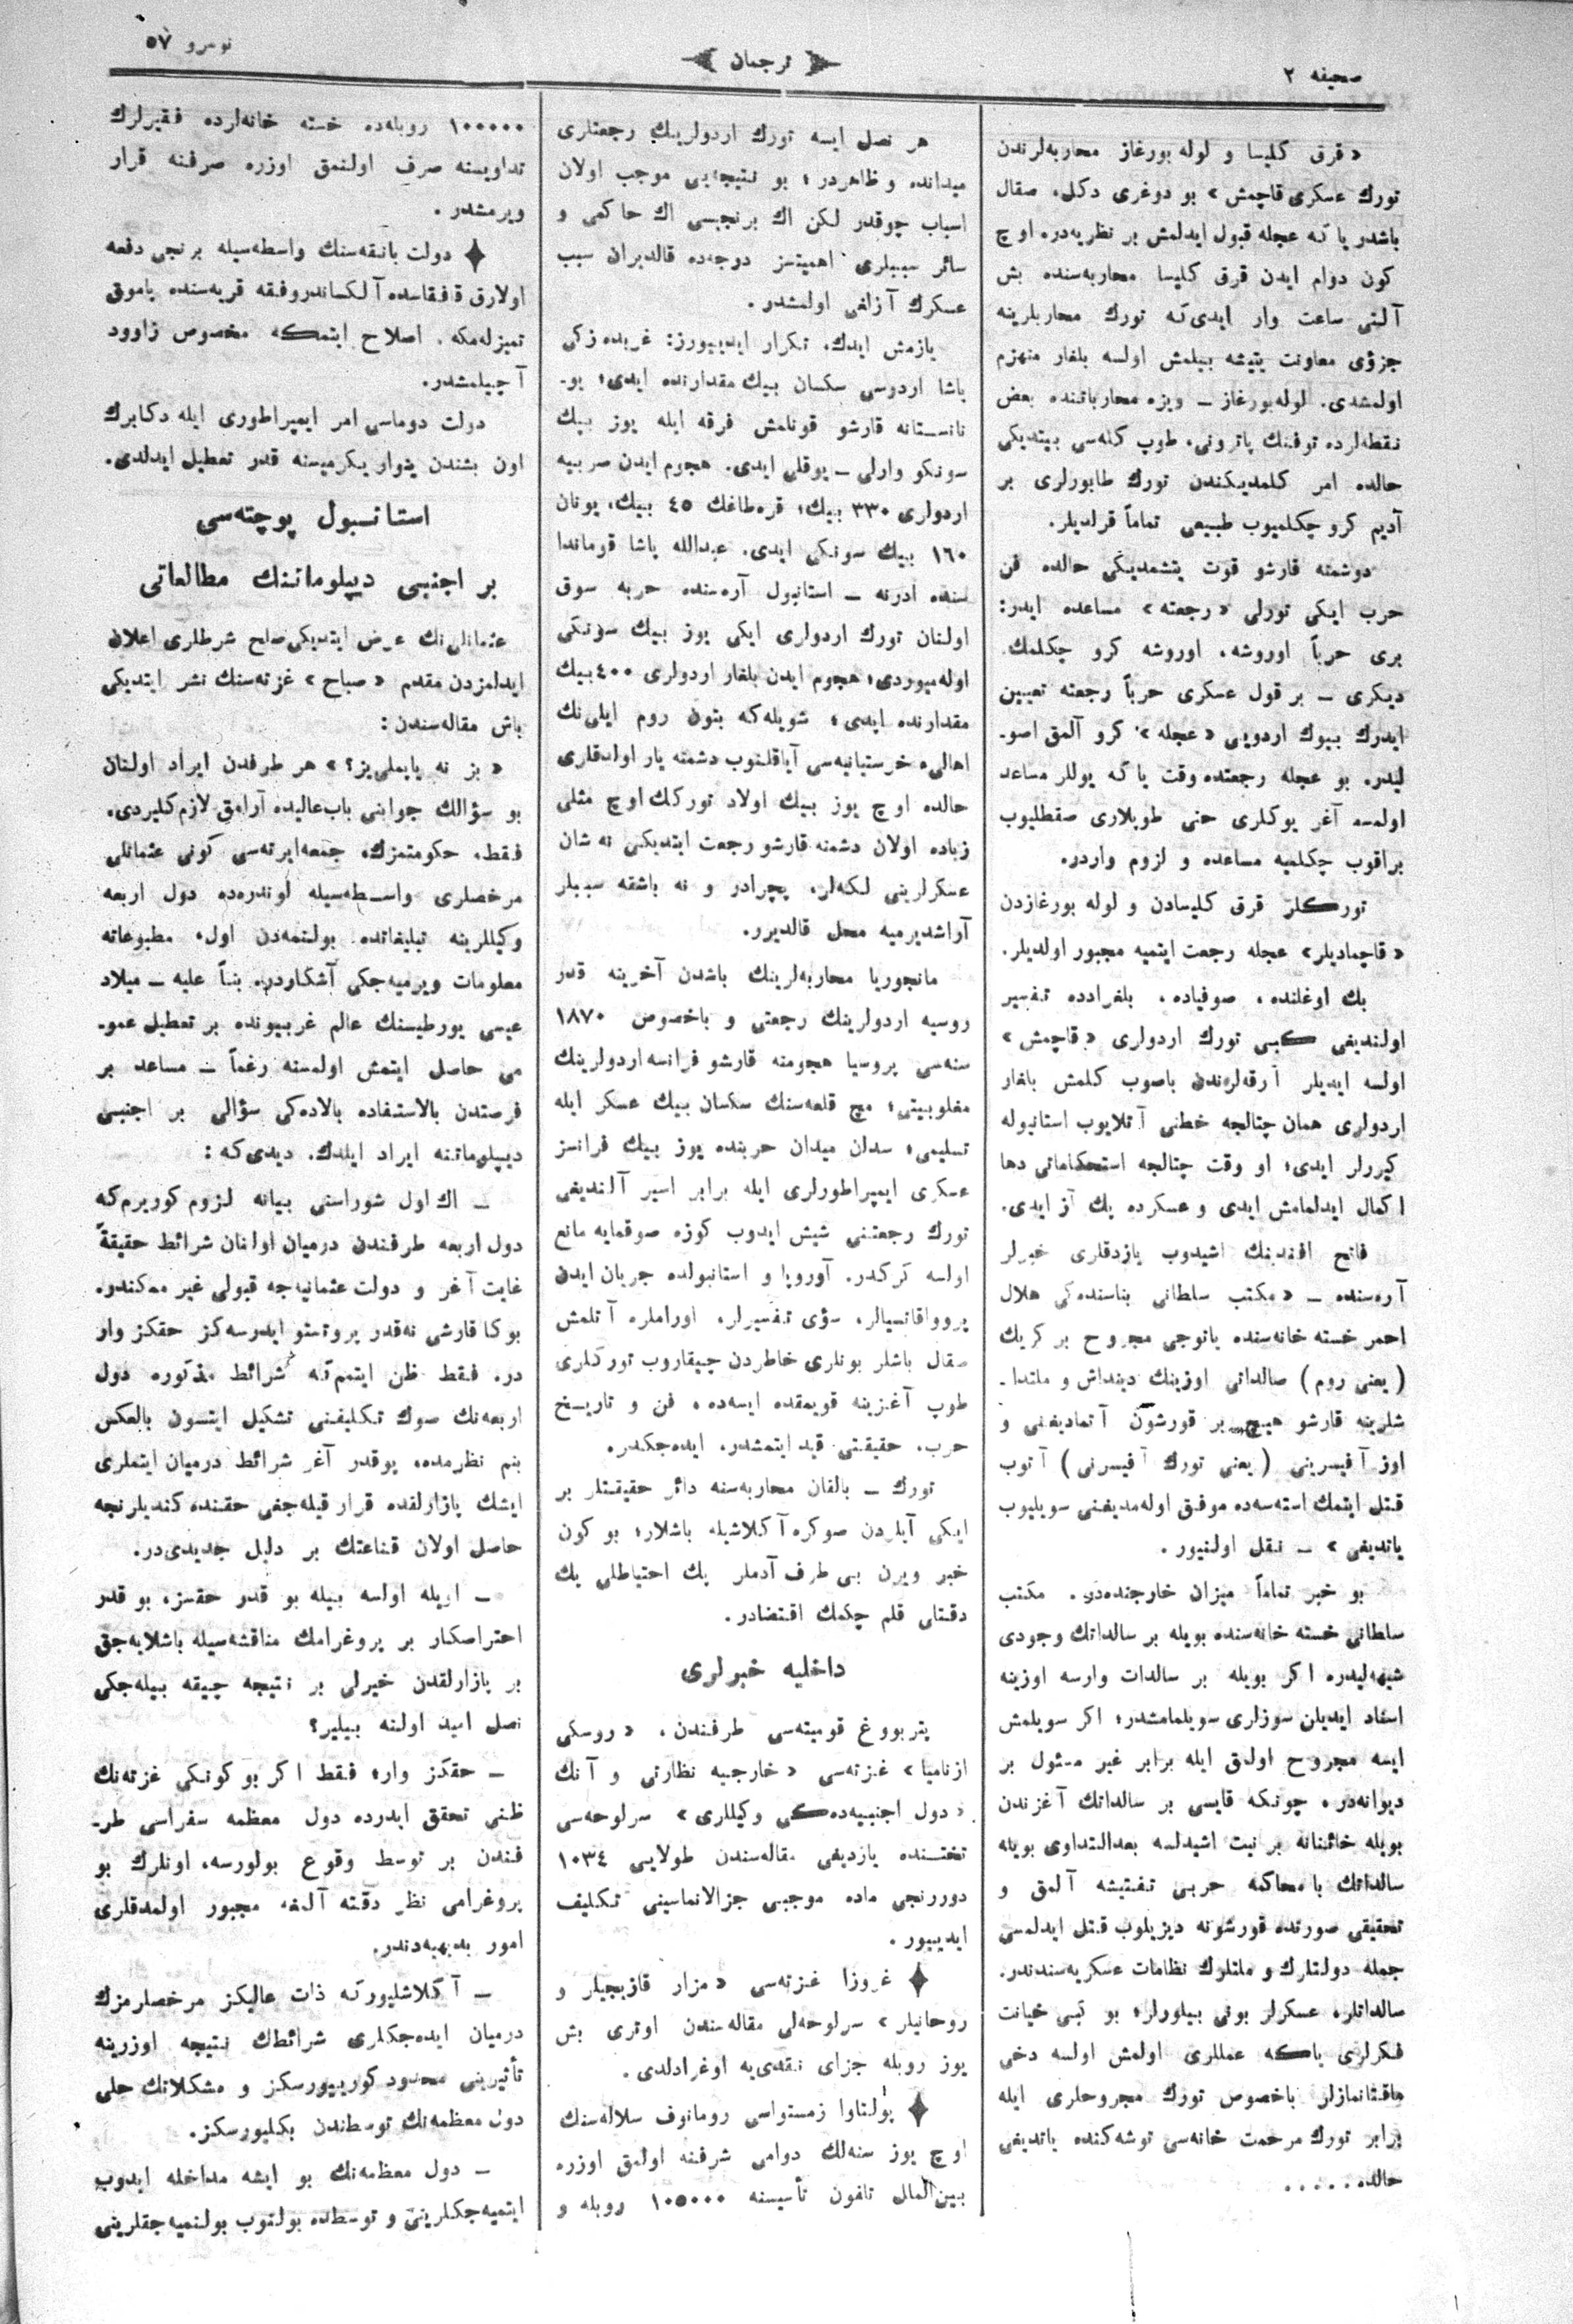 صحیفه ٢
ترجمان
نومرو ٥٧
«قرق کلیسا و لوله بورغاز محاربه‌لرندن
تورك عسکری قاچمش» بو دوغری دکل، صقال
باشدر یا که عجله قبول ایدلمش بر نظریه‌در. اوچ
کون دوام ایدن قرق کلیسا محاربه‌سنده بش
آلتی ساعت وار ایدی که تورك محاربلرینه
جزؤی معاونت یتیشه بیلمش اولسه بلغار منهزم
اولمشدی. لوله‌بورغاز ـ ویزه محارباتنده بعض
نقطه‌لرده توفنك پاترونی، طوپ کله‌سی بیتدیکی
حالده امر کلمدیکندن تورك طابورلری بر
آدیم کرو چکلمیوب طبیعی تماماً قرلدیلر.
دوشمنه قارشو قوت یتشمدیکی حالده فن
حرب ایکی تورلی «رجعته» مساعده ایدر:
بری حرباً اوروشه، اوروشه کرو چکلمك
دیکری ـ بر قول عسکری حرباً رجعته تعیین
ایدرك بیوك اردویی «عجله» کرو آلمق اصو-
لیدر. بو عجله رجعتده وقت یا که یوللر مساعد
اولمسه آغر یوکلری حتی طوپلاری صقطلیوب
براقوب چکلمیه مساعده و لزوم واردر.
تورکلر قرق کلیسادن و لوله بورغازدن
«قاچمادیلر» عجله رجعت ایتمیه مجبور اولدیلر.
بك اوغلنده، صوفیاده، بلغرادده تفسیر
اولندیغی کبی تورك اردولری «قاچمش»
اولسه ایدیلر آرقه‌لرندن باصوب کلمش بلغار
اردولری همان چتالجه خطنی آتلایوب استانبوله
کیررلر ایدی؛ او وقت چتالجه استحکاماتی دها
اکمال ایدلمامش ایدی و عسکرده پك آز ایدی.
فاتح افندینك اشیدوب یازدقلری خبرلر
آره‌سنده ـ «مکتب سلطانی بناسنده‌کی هلال
احمر خسته خانه‌سنده یاتوجی مجروح بر کریك
(یعنی روم) صالداتی اوزینك دینداش و ملتدا-
شلرینه قارشو هیچ بر قورشون آتمادیغنی و
اوز آفیسرینی (یعنی تورك آفیسرنی) آتوب
قتل ایتمك استه‌سه‌ده موفق اوله‌مدیغنی سویلیوب
یاتدیغی» ـ نقل اولنیور.
بو خبر تماماً میزان خارجنده‌در. مکتب
سلطانی خسته خانه‌سنده بویله بر سالداتك وجودی
شبهه‌لیدره اکر بویله بر سالدات وارسه اوزینه
اسناد ایدیلن سوزلری سویلمامشدر؛ اکر سویلمش
ایسه مجروح اولمق ایله برابر غیر مسئول بر
دیوانه‌در. چونکه قایسی بر سالداتك آغزندن
بویله خائنانه بر نیت اشیدلسه بعدالتداوی بویله
سالداتك با محاکمه حربی تفتیشه آلمق و
تحقیقی صورتده قورشونه دیزیلوب قتل ایدلمسی
جمله دولتلرك و ملتلرك نظامات عسکریه‌سندندر.
سالداتلر، عسکرلر بونی بیلورلر؛ بو کبی خیانت
فکرلری یا که عمللری اولمش اولسه دخی
ماقتانمازلر باخصوص تورك مجروحلری ایله
برابر تورك مرحمت خانه‌سی توشه‌کنده یاتدیغی
حالده.....
هر نصل ایسه تورك اردولرینك رجعتلری
میدانده و ظاهردر؛ بو نتیجه‌یی موجب اولان
اسباب چوقدر لکن اك برنجیسی اك حاکمی و
سائر سببلری اهمیتسز درجه‌ده قالدیران سبب
عسکرك آزلغی اولمشدر.
یازمش ایدك، تکرار ایدییورز: غربده زکی
پاشا اردوسی سکسان بیك مقدارنده ایدی؛ یو-
نانستانه قارشو قونلمش فرقه ایله یوز بیك
سونکو وارلی ـ یوقلی ایدی. هجوم ایدن صربیه
اردولری ٣٣٠ بیك؛ قره‌طاغك ٤٥ بیك، یونان
١٦٠ بیك سونکی ایدی. عبدالله پاشا قوماندا
سنده ادرنه ـ استانبول آره‌سنده حربه سوق
اولنان تورك اردولری ایکی یوز بیك سونکی
اوله‌میوردی؛ هجوم ایدن بلغار اردولری ٤٠٠ بیك
مقدارنده ایدی؛ شویله‌که بتون روم ایلی‌نك
اهالیء خرستیانیه‌سی آیاقلنوب دشمنه یار اولدقلری
حالده اوچ یوز بیك اولاد تورکك اوچ مثلی
زیاده اولان دشمنه قارشو رجعت ایتدیکی نه شان
عسکرلرینی لکه‌لر، پچرادر و نه باشقه سببلر
آراشدیرمیه محل قالدیرر.
مانجوریا محاربه‌لرینك باشدن آخرینه قدر
روسیه اردولرینك رجعتی و باخصوص ١٨٧٠
سنه‌سی پروسیا هجومنه قارشو فرانسه اردولرینك
مغلوبیتی؛ مچ قلعه‌سنك سکسان بیك عسکر ایله
تسلیمی؛ سدان میدان حربنده یوز بیك فرانسز
عسکری ایمپراطورلری ایله برابر اسیر آلندیغی
تورك رجعتنی شیش ایدوب کوزه صوقمایه مانع
اولسه کرکدر. آوروپا و استانبولده جریان ایدن
پرووقاتسیالر، سؤی تفسیرلر، اوراملره آتلمش
صقال باشلر بونلری خاطردن چیقاروب تورکلری
طوپ آغزینه قویمقده ایسه‌ده، فن و تاریخ
حرب، حقیقتی قید ایتمشدر، ایده‌جکدر.
تورك ـ بالقان محاربه‌سنه دائر حقیقتلر بر
ایکی آیلردن صوکره آکلاشیله باشلار؛ بو کون
خبر ویرن بی طرف آدملر پك احتیاطلی پك
دقتلی قلم چکمك اقتضادر.
داخلیه خبرلری
پتربورغ قومیته‌سی طرفندن، «روسکی
ازنامیا» غزته‌سی «خارجیه نظارتی و آنك
«دول اجنبیه‌ده‌کی وکیللری» سرلوحه‌سی
تختنده یازدیغی مقاله‌سندن طولایی ١٠٣٤
دوررنجی ماده موجبی جزالانماسینی تکلیف
ایدییور.
غروزا غزته‌سی «مزار قازیجیلر و
روحانیلر» سرلوحه‌لی مقاله‌سندن اوتری بش
یوز روبله جزای نقدی‌یه اوغرادلدی.
پولتاوا زمستواسی رومانوف سلاله‌سنك
اوچ یوز سنه‌لك دوامی شرفنه اولمق اوزره
بین‌الملل تلفون تأسیسنه ١٠٥٠٠٠ روبله و
١٠٠٠٠٠ روبله‌ده خسته خانه‌لرده فقیرلرك
تداویسنه صرف اولنمق اوزره صرفنه قرار
ویرمشدر.
دولت بانقه‌سنك واسطه‌سیله برنجی دفعه
اولارق قافقاسده آلکساندروفقه قریه‌سنده پاموق
تمیزله‌مکه، اصلاح ایتمکه مخصوص زاوود
آچیلمشدر.
دولت دوماسی امر ایمپراطوری ایله دکابرك
اون بشندن ینوار یکرمیسنه قدر تعطیل ایدلدی.
استانبول پوچته‌سی
بر اجنبی دیپلوماتنك مطالعاتی
عثمانلی‌نك عرض ایتدیکی صلح شرطلری اعلان
ایدلمزدن مقدم «صباح» غزته‌سنك نشر ایتدیکی
باش مقاله‌سندن:
«بز نه یاپملی‌یز؟» هر طرفدن ایراد اولنان
بو سؤالك جوابنی باب‌عالیده آرامق لازم کلیردی.
فقط، حکومتمزك، جمعه‌ایرته‌سی کونی عثمانلی
مرخصلری واسطه‌سیله لوندره‌ده دول اربعه
وکیللرینه تبلیغاتده بولنمه‌دن اول، مطبوعاته
معلومات ویرمیه‌جکی آشکاردر. بناً علیه ـ میلاد
عیسی یورطیسنك عالم غربییونده بر تعطیل عمو-
می حاصل ایتمش اولمسنه رغماً ـ مساعد بر
فرصتدن بالاستفاده بالاده‌کی سؤالی بر اجنبی
دیپلوماتنه ایراد ایلدك. دیدی که:
ـ اك اول شوراسنی بیانه لزوم کوریرم که
دول اربعه طرفندن درمیان اولنان شرائط حقیقةً
غایت آغر و دولت عثمانیه‌جه قبولی غیر ممکندر.
بوکا قارشی نه‌قدر پروتستو ایدرسه‌کز حقکز وار
در. فقط ظن ایتمم که شرائط مذکوره دول
اربعه‌نك صوك تکلیفنی تشکیل ایتسون بالعکس
بنم نظرمده، بوقدر آغر شرائط درمیان ایتملری
ایشك پازارلقده قرار قیله‌جغی حقنده کندیلرنجه
حاصل اولان قناعتك بر دلیل جدیدی‌در.
ـ اویله اولسه بیله بو قدر حقسز، بو قدر
احتراصکار بر پروغرامك مناقشه‌سیله باشلایه‌جق
بر پازارلقدن خیرلی بر نتیجه چیقه بیله‌جکی
نصل امید اولنه بیلیر؟
ـ حقکز وار؛ فقط اکر بو کونکی غزته‌نك
ظنی تحقق ایدرده دول معظمه سفراسی طر-
فندن بر توسط وقوع بولورسه، اونلرك بو
پروغرامی نظر دقته آلمغه مجبور اولمدقلری
امور بدیهیه‌دندر.
ـ آکلاشلیور که ذات عالیکز مرخصلرمزك
درمیان ایده‌جکلری شرائطك نتیجه اوزرینه
تأثیرینی محدود کورییورسکز و مشکلاتك حلی
دول معظمه‌نك توسطندن بکلیورسکز.
ـ دول معظمه‌نك بو ایشه مداخله ایدوب
ایتمیه‌جکلرینی و توسطده بولنوب بولنمیه‌جقلرینی